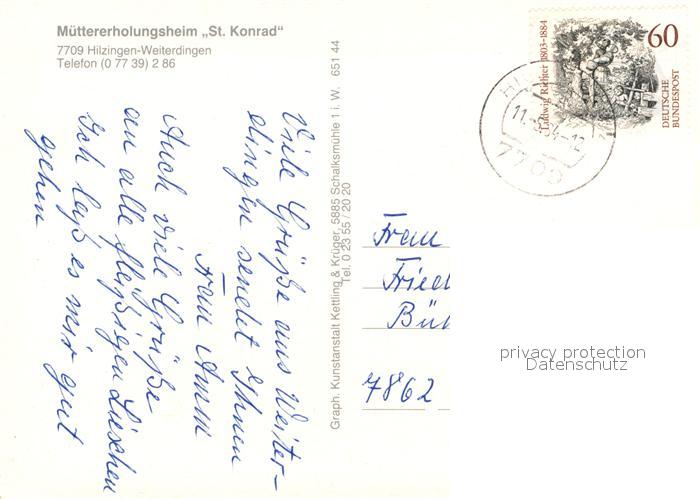 Müttererholungsheim „St. Konrad“
7709 Hilzingen-Weiterdingen
Telefon (0 77 39) 2 86
Viele Grüße aus Weiter-
dingen sendet Ihnen
Frau Amm
Auch viele Grüße
an alle fleißigen Lieschen
Ich laß es mir gut
gehen
Graph. Kunstanstalt Kettling & Krüger, 5885 Schalksmühle 1 i. W. 651 44
Tel. 0 23 55 / 20 20
Ludwig Richter 1803-1884
60
DEUTSCHE
BUNDESPOST
7709
Frau
Fried
Bü
7862
privacy protection
Datenschutz